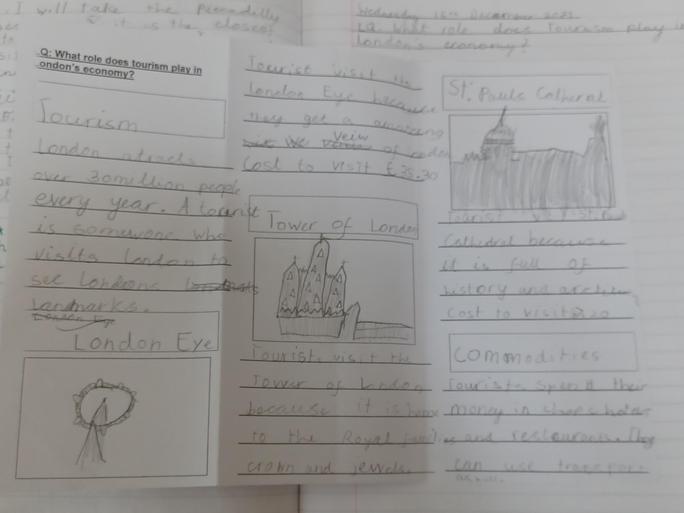 . I will take the Piccadilly
it is the closest
Wednesday 15th December 2021
LQ: What role does Tourism play in
London's economy?
Q: What role does tourism play in
ondon's economy?
Tourism
London atracts
over 30million people
every year. A tourist
is somewone who
visits London to
see Londons
Landmarks.
London Eye
Tourist visit the
London Eye because
they get a amazing
Veiw
of
Cost to visit £
Tower of London
Tourist visit the
Tower of London
because it is home
to the Royal families
crown and jewels.
St. Pauls Catheral
Tourist visit
Cathedral because
it is full of
history and
Cost to visit £20
Commodities
Tourists spend their
money in shops hotels
and restaurants. They
can use transport
as well.